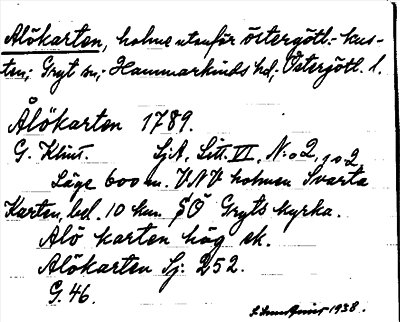 Alökarten, holme utanför östergötl:- kus-
ten; Gryt sn; Hammarkinds hd; Östergötl. l.
Ålökarten 1789.
G. Klint. SjA, Litt. VI, N:o 2, 102.
Läge 600 m. VNV holmen Svarta
Karten, bel. 10 km. SÖ Gryts kyrka.
Alö karten hög ek.
Alökarten Sj: 252.
G. 46.
1938.